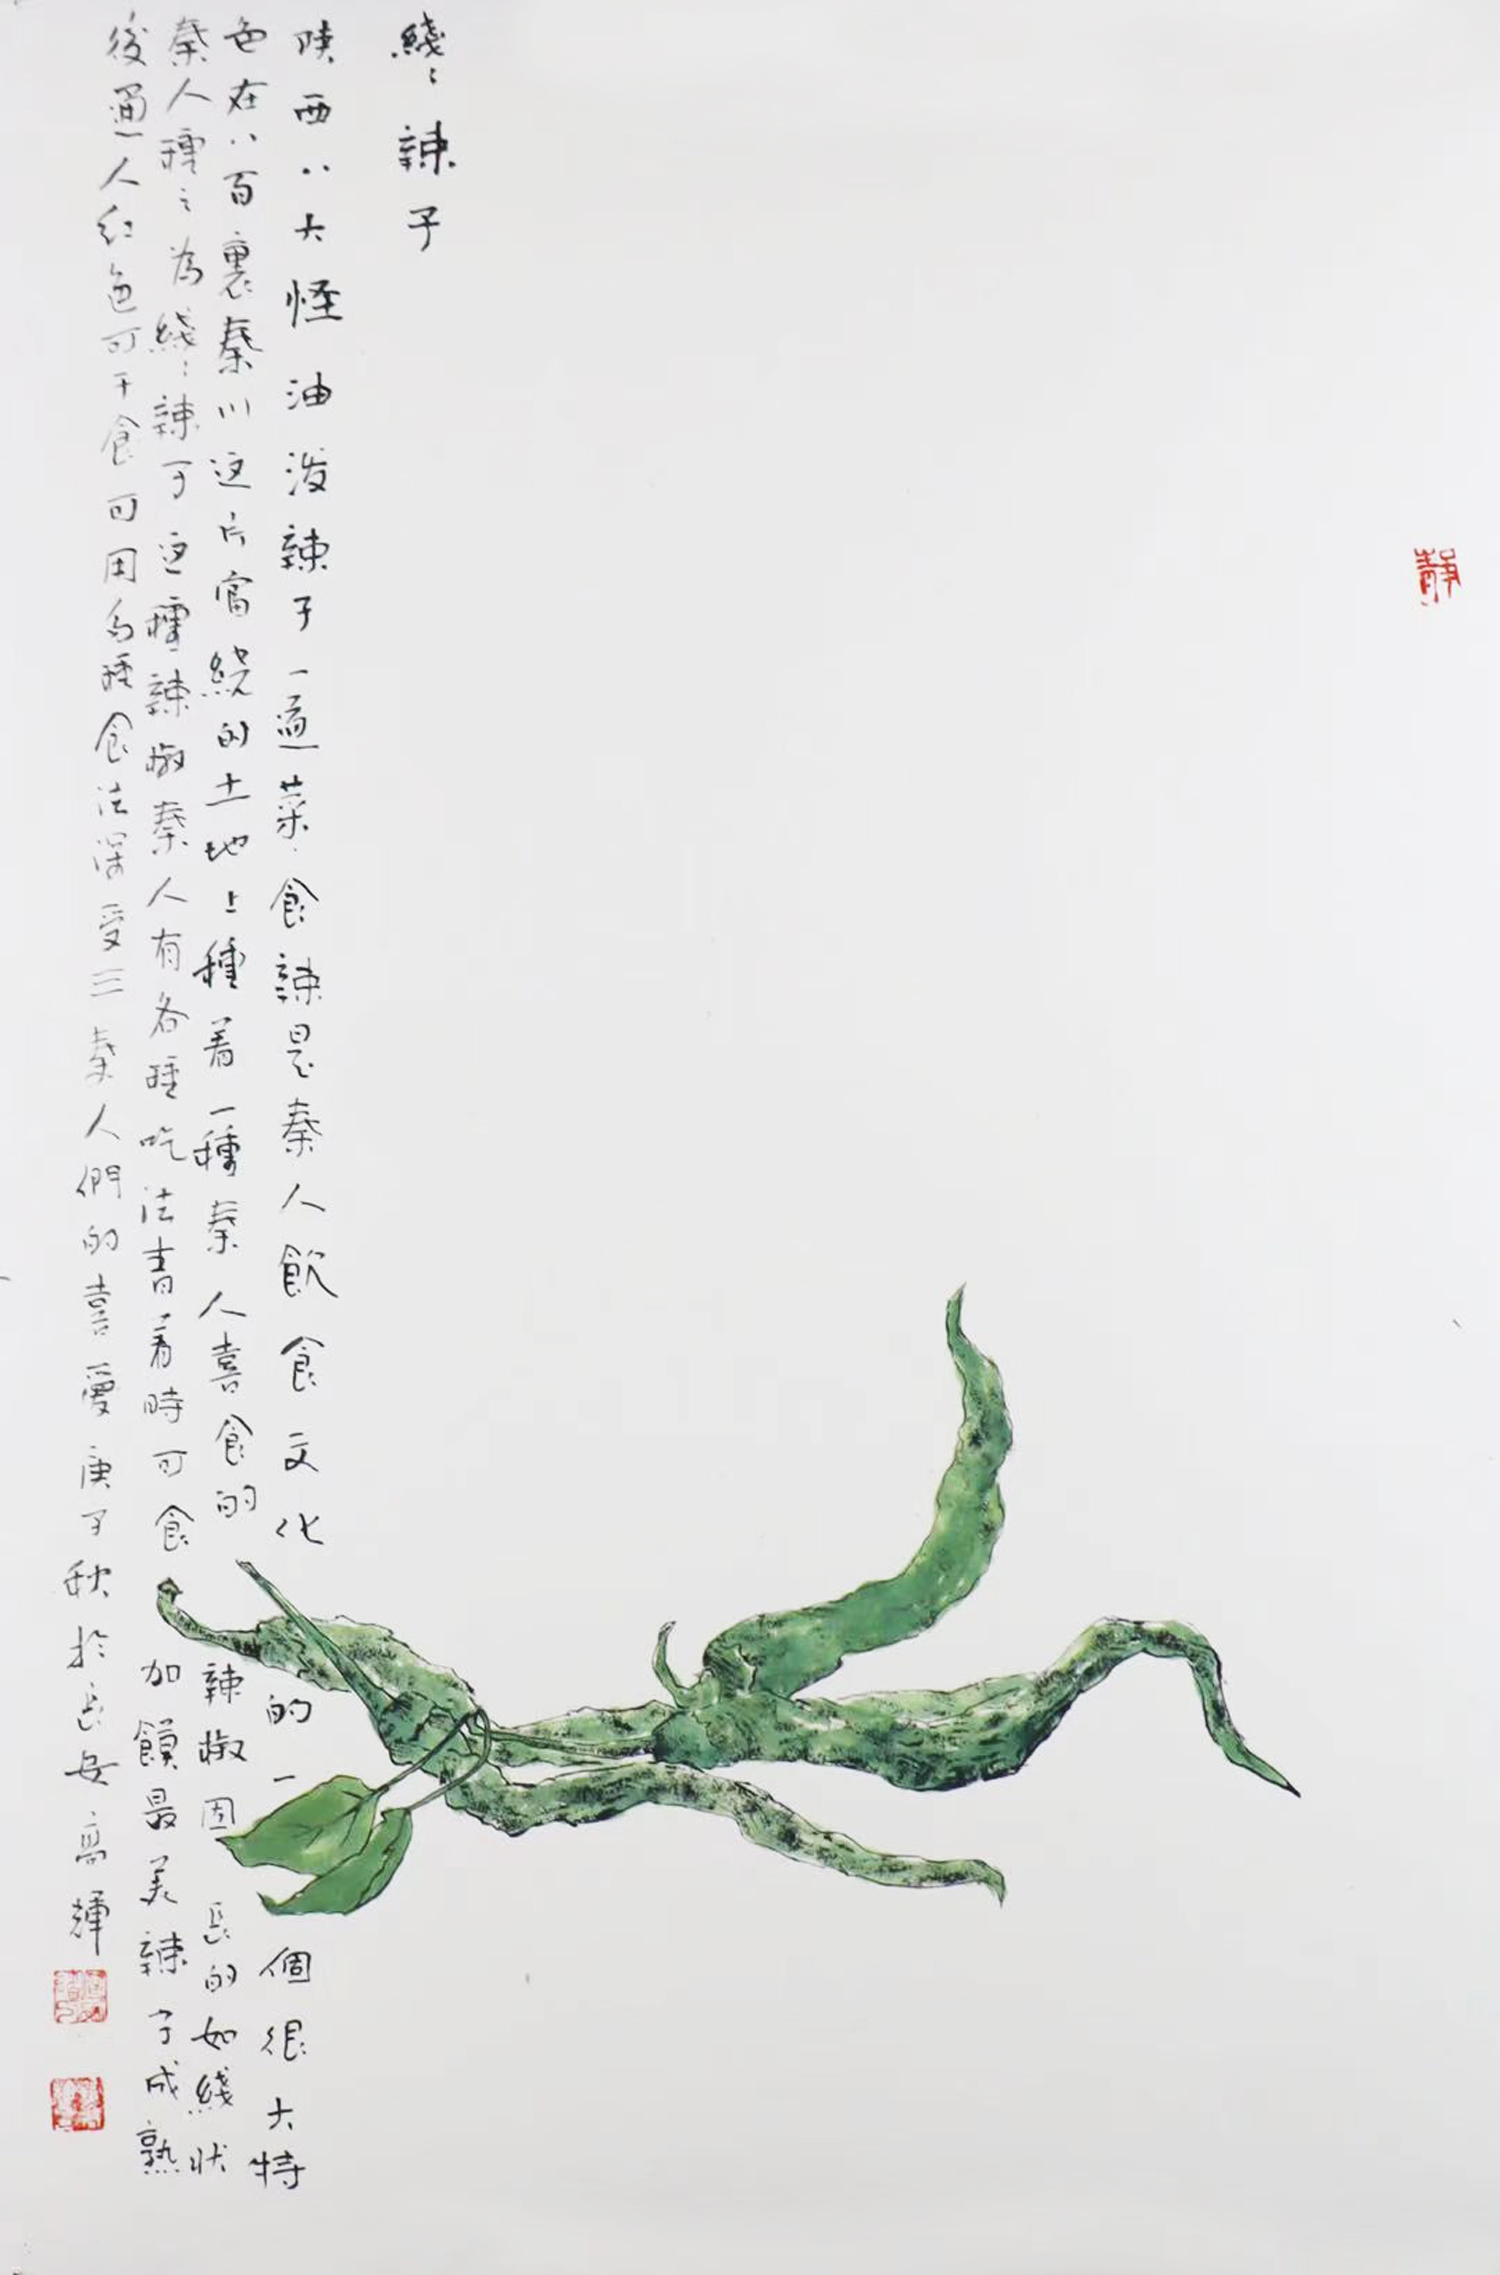 綫〻辣子
陝西八大怪油泼辣子一道菜食辣是秦人飲食文化的一個很大特
色在八百裏秦川这片富绕的土地上種着一種秦人喜食的辣椒因長的如綫状
秦人稱之為綫〻辣子这種辣椒秦人有各種吃法青着時可食加饃最美辣子成熟
後通人红色可干食可用多種食法深受三秦人們的喜愛庚子秋於長安高輝
靜